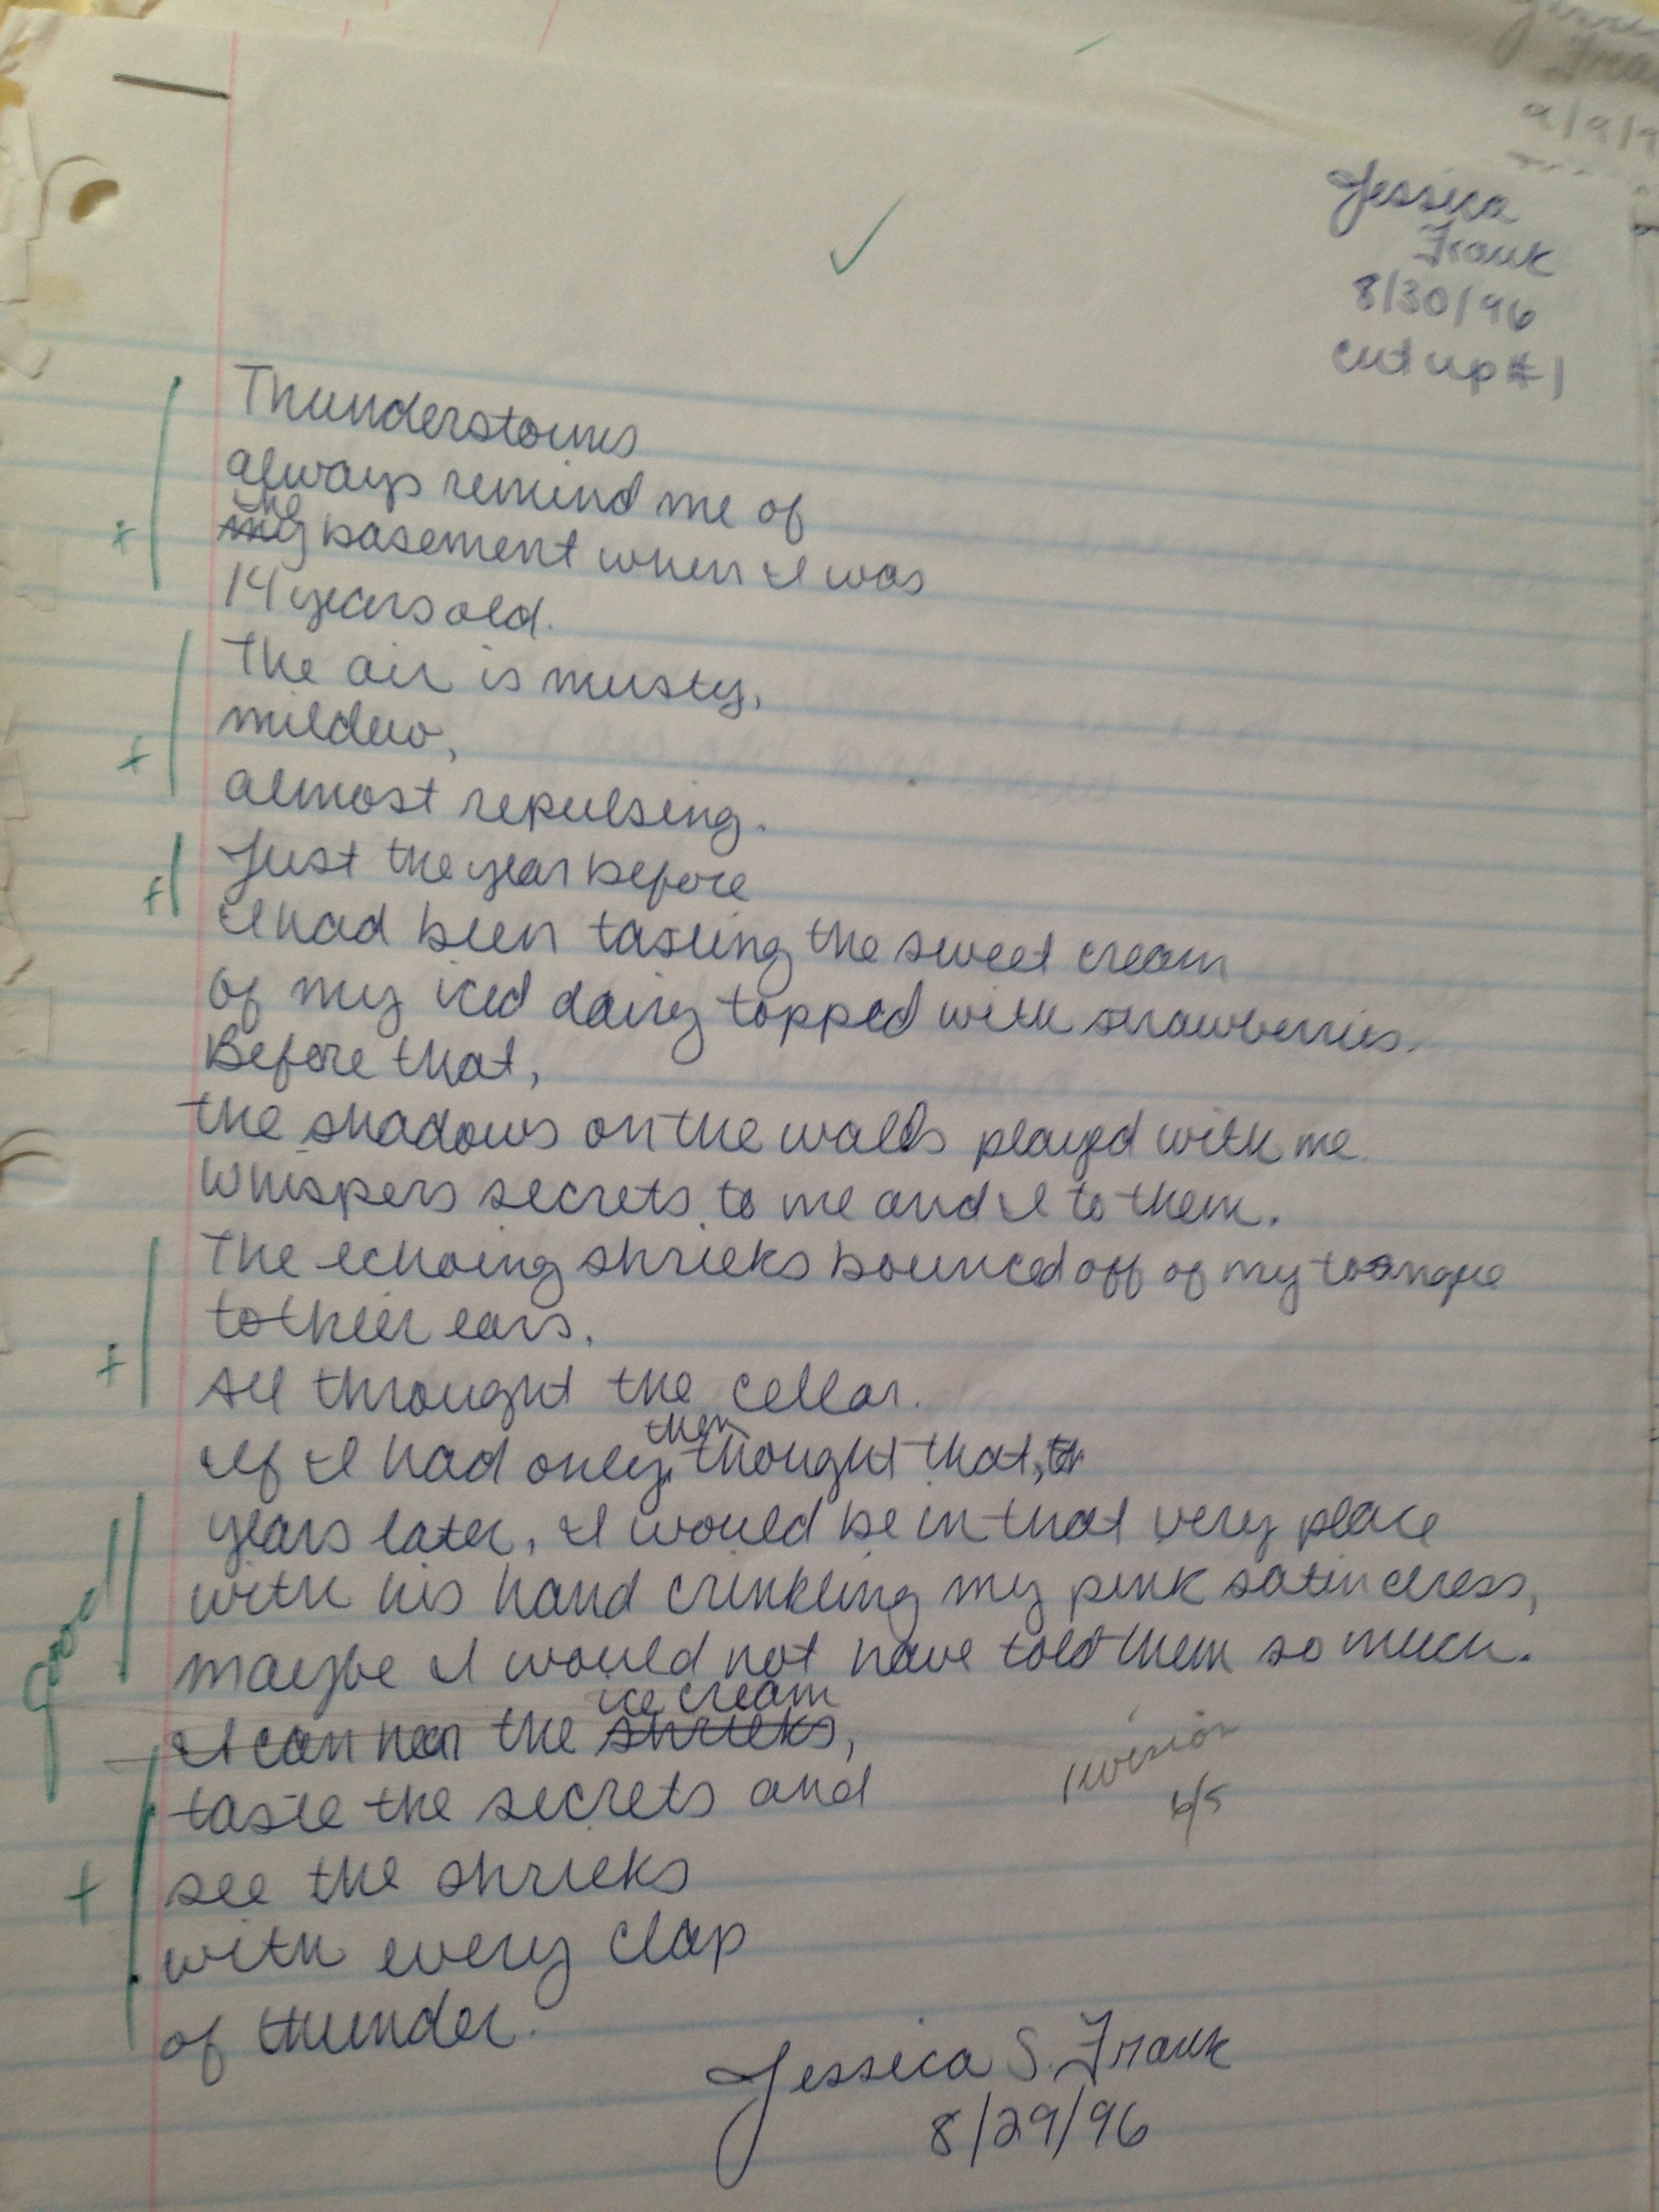 Jessica
Frank
8/30/96
cut up #1
Thunderstorms
always remind me of
the
my basement when I was
14 years old.
The air is musty,
mildew,
almost repulsing.
Just the year before
I had been tasting the sweet cream
of my iced dairy topped with strawberries.
Before that,
the shadows on the walls played with me
whispers secrets to me and I to them.
The echoing shrieks bounced off of my toangue
to their ears.
All throught the cellar.
then
If I had only thought that, th
years later, I would be in that very place
with his hand crinkling my pink satin dress,
good!
maybe I would not have told them so much.
ice cream
I can hear the shrieks,
revision
6/5
taste the secrets and
see the shrieks
with every clap
of thunder.
Jessica S. Frank
8/29/96